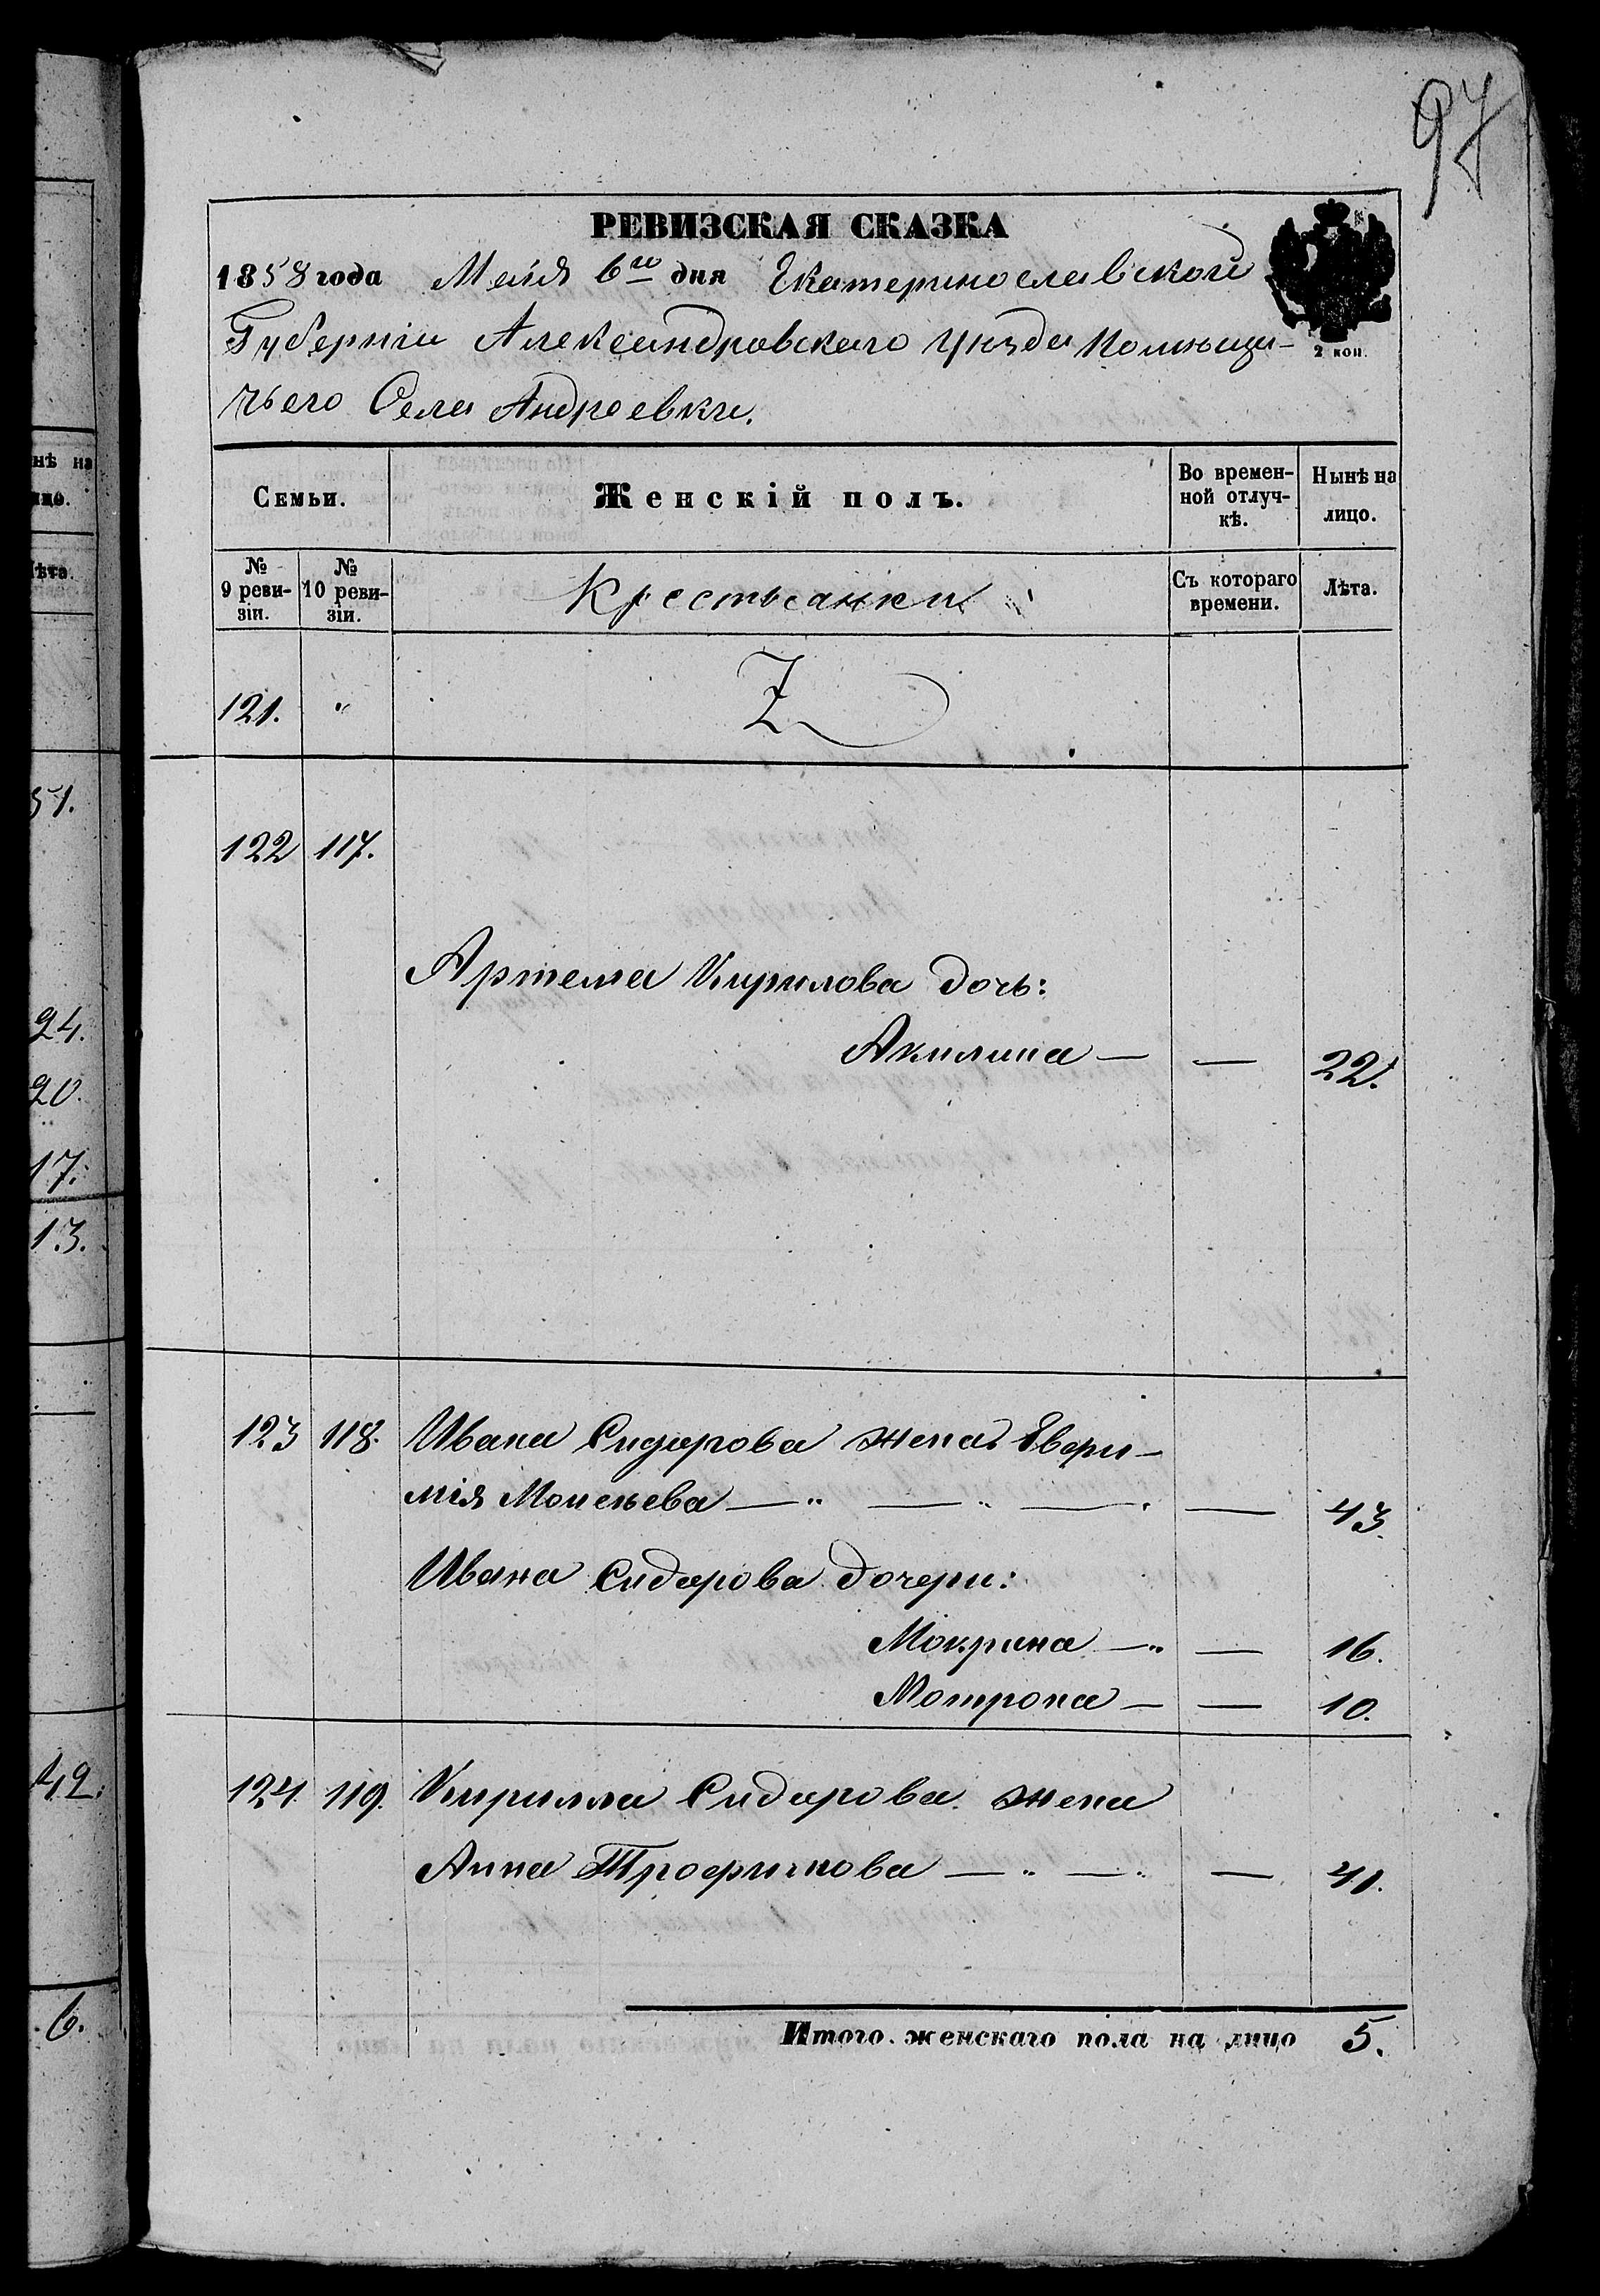 97
РЕВИЗСКАЯ СКАЗКА
1858 года Маія 6го дня Екатеринославской
Губерніи Александровскаго Уѣзда Помѣщи-
чьего Села Андреевки.
2 коп.
Семьи. Женскій полъ. Во времен-ной отлуч-кѣ. Нынѣ на лицо.
№ 9 реви-зіи. № 10 реви-зіи. Крестьянки Съ котораго времени. Лѣта.
121. "
122 117.
Артема Кирилова дочь:
Акилина — — 22.
123 118. Ивана Сидорова жена Евфи-
мія Моисѣева — " — " — — 43.
Ивана Сидорова дочери:
Мокрина — " — 16.
Мотрона — — 10.
124. 119. Кирилла Сидорова жена
Анна Трофимова — " — " — 41.
Итого женскаго пола на лицо 5.
нѣ на
лицо.
Лѣта.
51.
24.
20.
17.
13.
42.
6.